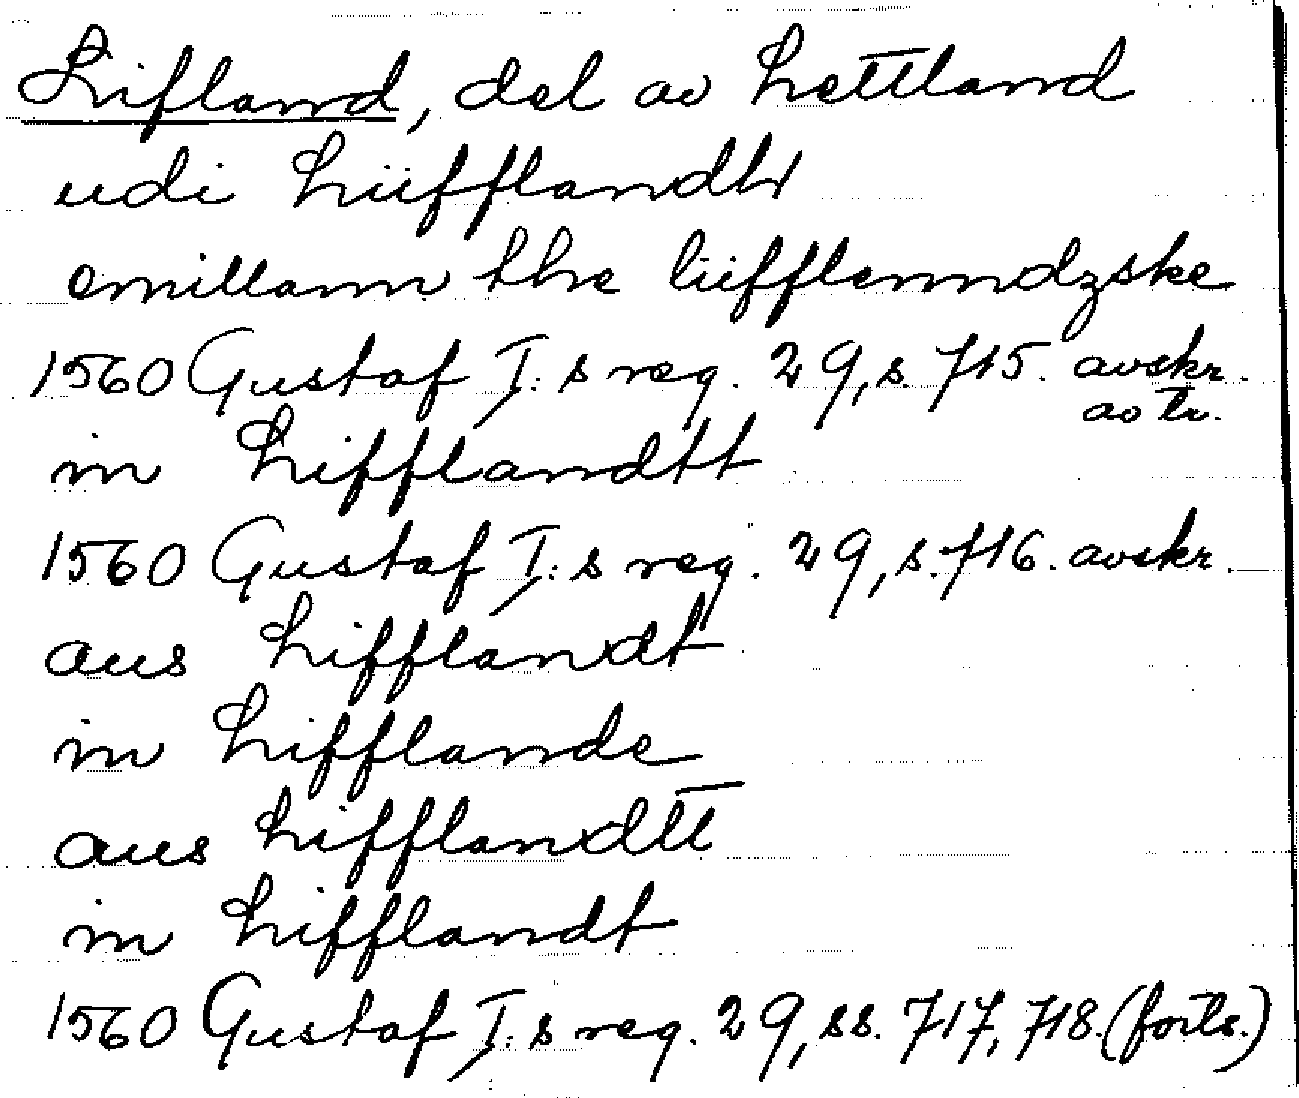 Lifland, del av Lettland
udi Lüfflandh
emillann the lüfflenndzske
1560 Gustaf I:s reg. 29, s. 715. avskr.
av tr.
in Lifflandtt
1560 Gustaf I:s reg. 29, s. 716. avskr.
aus Lifflandt
in Lifflande
aus Lifflandtt
in Lifflandt
1560 Gustaf I:s reg. 29, ss. 717, 718. (forts.)